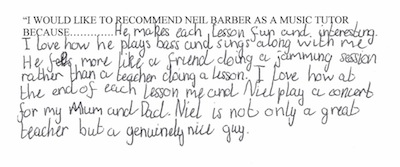 "I WOULD LIKE TO RECOMMEND NEIL BARBER AS A MUSIC TUTOR
BECAUSE............He makes each lesson fun and interesting.
I love how he plays bass and sings along with me
He feels more like a friend doing a jamming session
rather than a teacher doing a lesson. I love how at
the end of each lesson me and Niel play a concert
for my Mum and Dad. Niel is not only a great
teacher but a genuinely nice guy.